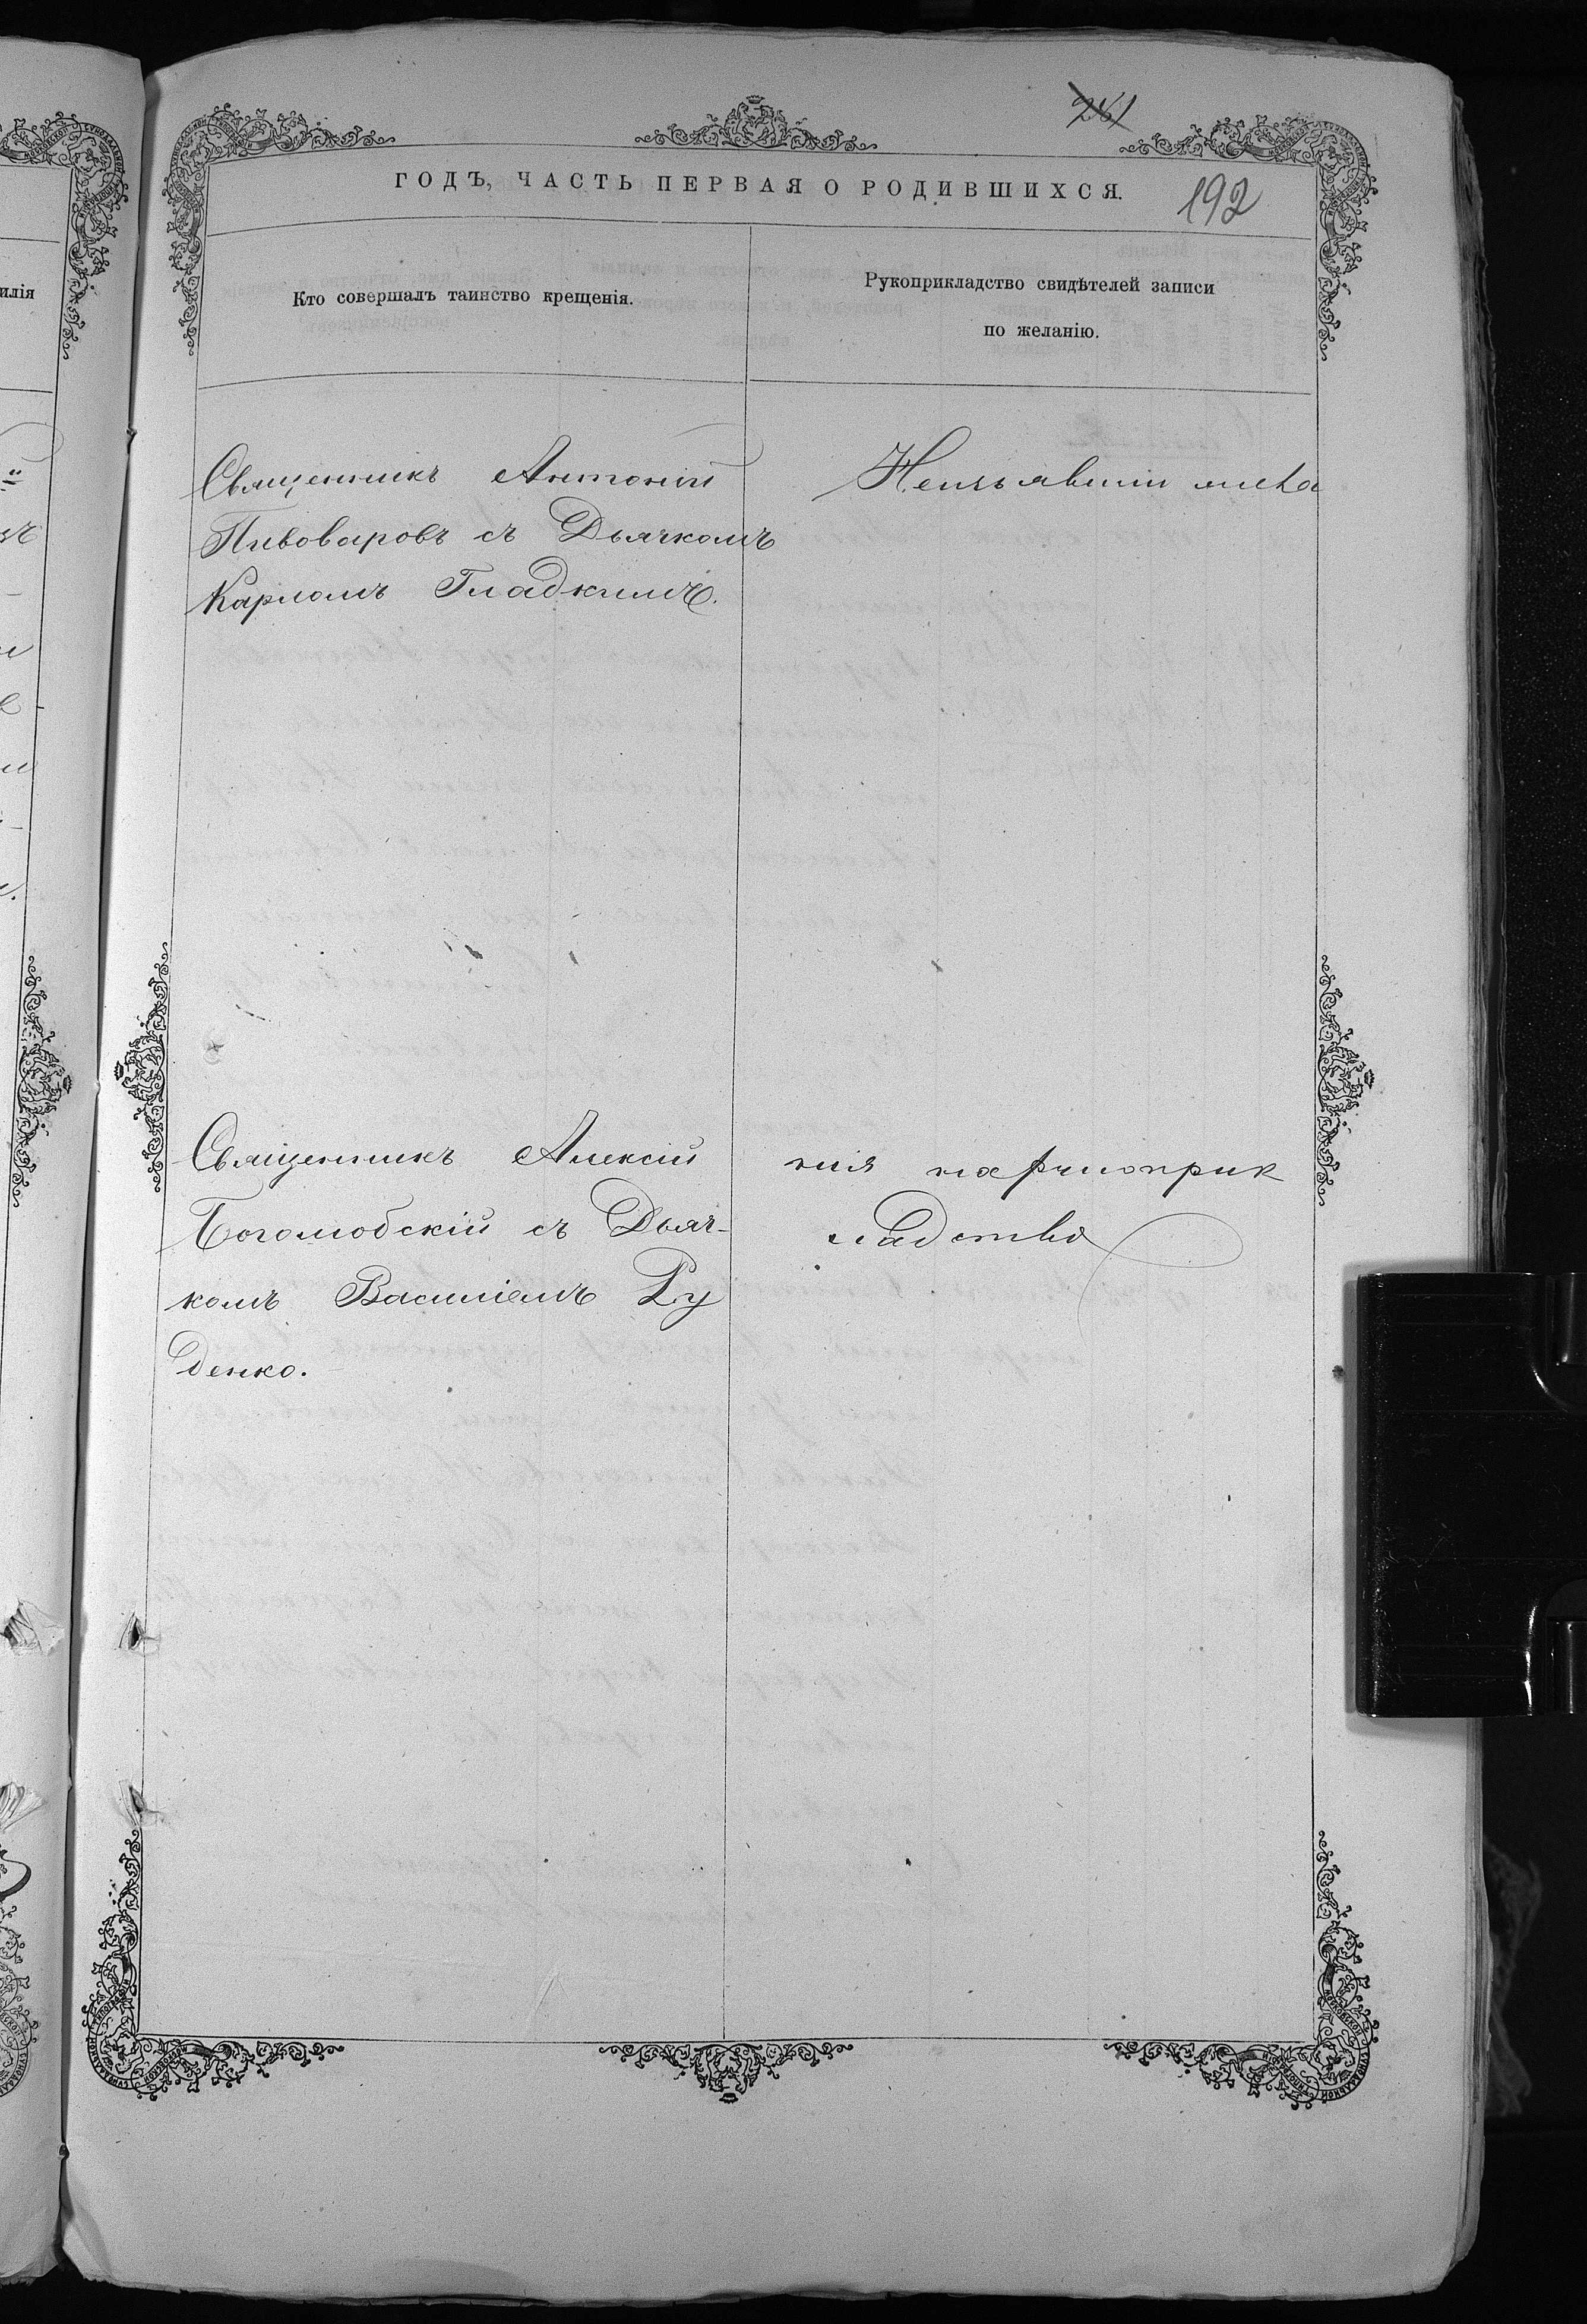 261
ГОДЪ, ЧАСТЬ ПЕРВАЯ О РОДИВШИХСЯ.
192
илія
Кто совершалъ таинство крещенія.
Рукоприкладство свидѣтелей записи
по желанію.
Священникъ Антоній
Пивоваровъ съ Дьячкомъ
Карпомъ Гладкимъ.
Священникъ Алексій
Боголюбскій съ Дьяч-
комъ Василіемъ Ру
денко.
Неизъявили жела
нія на рукоприк
ладство